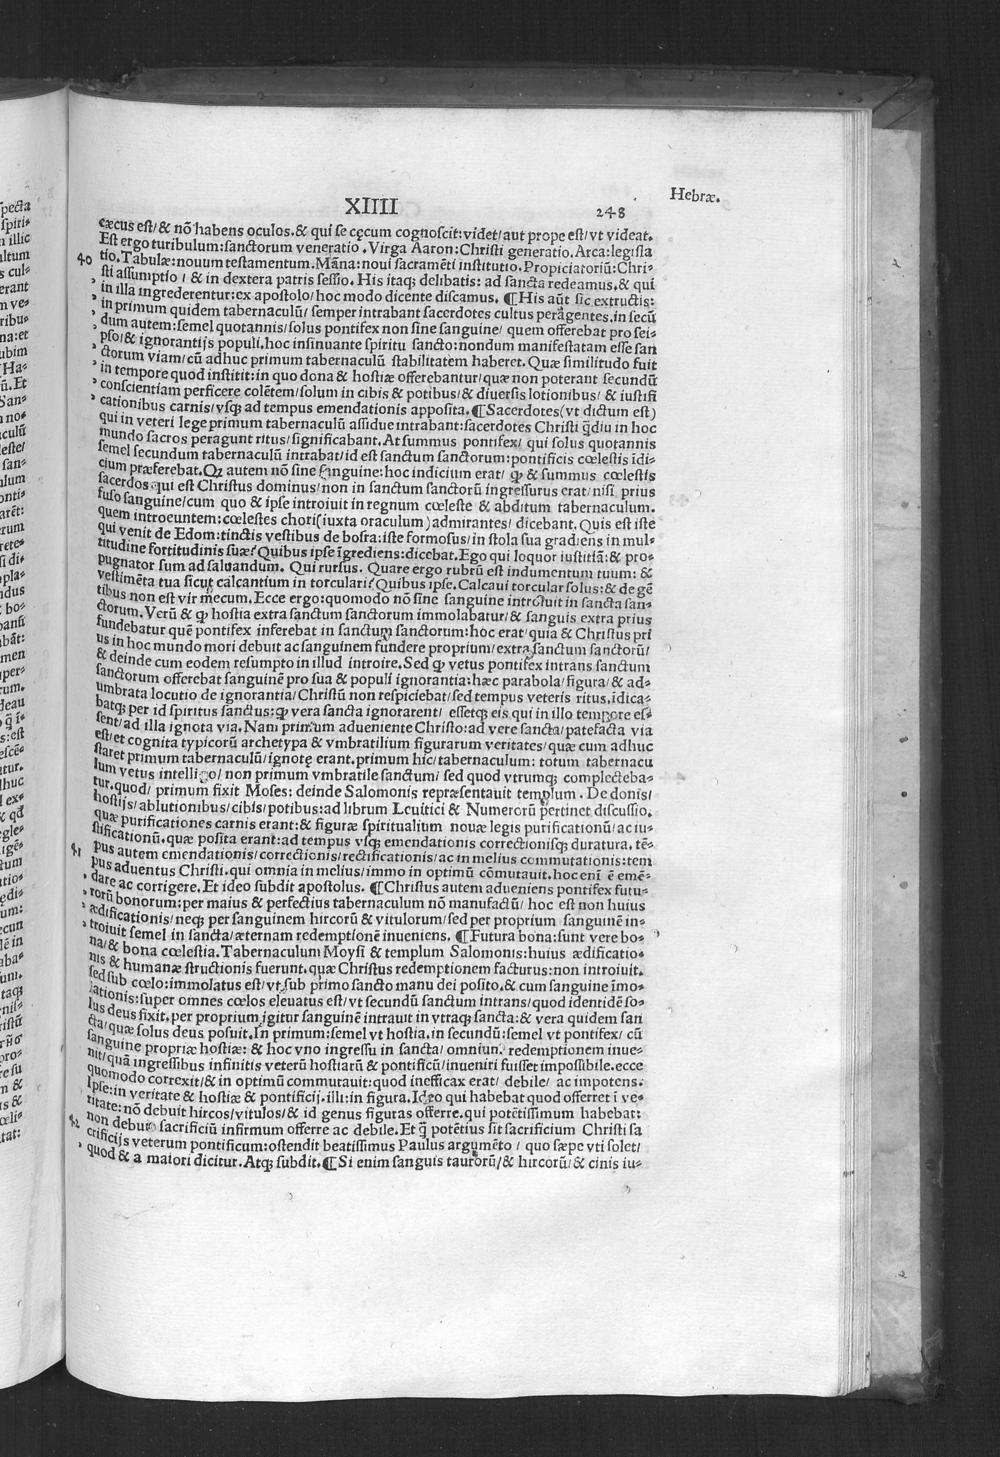 XIIII
248
Hebræ.
cæcus est/ & nō habens oculos.& qui se cęcum cognoscit:videt/ aut prope est/ vt videat.
Est ergo turibulum:sanctorum veneratio . Virga Aaron:Christi generatio. Arca:legisla
40 tio.Tabulæ:nouum testamentum.Māna:noui sacramēti institutio.Propiciatoriū:Chri-
sti assumptio / & in dextera patris sessio. His itaq; delibatis: ad sancta redeamus.& qui
in illa ingrederentur:ex apostolo/ hoc modo dicente discamus. ¶His aūt sic extructis:
in primum quidem tabernaculū/ semper intrabant sacerdotes cultus peragentes.in secū
dum autem:semel quotannis/ solus pontifex non sine sanguine/ quem offerebat pro sei-
pso/ & ignorantijs populi.hoc insinuante spiritu sancto:nondum manifestatam esse san
ctorum viam/ cū adhuc primum tabernaculū stabilitatem haberet. Quæ similitudo fuit
in tempore quod institit:in quo dona & hostiæ offerebantur/ quæ non poterant secundū
conscientiam perficere colētem/ solum in cibis & potibus/ & diuersis lotionibus/ & iustifi
cationibus carnis/ vsq; ad tempus emendationis apposita. ¶Sacerdotes (vt dictum est)
qui in veteri lege primum tabernaculū assidue intrabant:sacerdotes Christi q̄diu in hoc
mundo sacros peragunt ritus/ significabant. At summus pontifex/ qui solus quotannis
semel secundum tabernaculū intrabat/ id est sanctum sanctorum:pontificis cœlestis īdi-
cium præferebat.Qz autem nō sine sanguine:hoc indicium erat/ ꝙ & summus cœlestis
sacerdos qui est Christus dominus/ non in sanctum sanctorū ingressurus erat/ nisi prius
fuso sanguine/ cum quo & ipse introiuit in regnum cœleste & abditum tabernaculum.
quem introeuntem:cœlestes chori(iuxta oraculum)admirantes/ dicebant. Quis est iste
qui venit de Edom:tinctis vestibus de bosra:iste formosus/ in stola sua gradiens in mul-
titudine fortitudinis suæ? Quibus ipse īgrediens:dicebat.Ego qui loquor iustitiā:& pro-
pugnator sum ad saluandum. Qui rursus. Quare ergo rubrū est indumentum tuum: &
vestimēta tua sicut calcantium in torculari? Quibus ipse. Calcaui torcular solus:& de gē
tibus non est vir mecum. Ecce ergo:quomodo nō sine sanguine introiuit in sancta san-
ctorum. Verū & ꝙ hostia extra sanctum sanctorum immolabatur/ & sanguis extra prius
fundebatur quē pontifex inferebat in sanctum sanctorum:hoc erat/ quia & Christus pri
us in hoc mundo mori debuit ac sanguinem fundere proprium/ extra sanctum sanctorū/
& deinde cum eodem resumpto in illud introire. Sed ꝙ vetus pontifex intrans sanctum
sanctorum offerebat sanguinē pro sua & populi ignorantia:hæc parabola/ figura/ & ad-
umbrata locutio de ignorantia/ Christū non respiciebat/ sed tempus veteris ritus.idica-
batq; per id spiritus sanctus:ꝙ vera sancta ignorarent/ essetq; eis qui in illo tempore es-
sent/ ad illa ignota via. Nam primum adueniente Christo:ad vere sancta/ patefacta via
est/ et cognita typicorū archetypa & vmbratilium figurarum veritates/ quæ cum adhuc
staret primum tabernaculū/ ignotę erant.primum hic/ tabernaculum: totum tabernacu
lum vetus intelligo/ non primum vmbratile sanctum/ sed quod vtrumq; complecteba-
tur.quod/ primum fixit Moses: deinde Salomonis repræsentauit templum . De donis/
hostijs/ ablutionibus/ cibis/ potibus:ad librum Leuitici & Numerorū pertinet discussio.
quæ purificationes carnis erant:& figuræ spiritualium nouæ legis purificationū/ ac iu-
stificationū.quæ posita erant:ad tempus vsq; emendationis correctionisq; duratura. tē-
41 pus autem emendationis/ correctionis/ rectificationis/ ac in melius commutationis:tem
pus aduentus Christi.qui omnia in melius/ immo in optimū cōmutauit.hoc enī ē emē-
dare ac corrigere. Et ideo subdit apostolus. ¶Christus autem adueniens pontifex futu-
rorū bonorum:per maius & perfectius tabernaculum nō manufactū/ hoc est non huius
ædificationis/ neq; per sanguinem hircorū & vitulorum/ sed per proprium sanguinē in-
troiuit semel in sancta/ æternam redemptionē inueniens. ¶Futura bona:sunt vere bo-
na/ & bona cœlestia.Tabernaculum Moysi & templum Salomonis:huius ædificatio-
nis & humanæ structionis fuerunt.quæ Christus redemptionem facturus:non introiuit.
sed sub cœlo:immolatus est/ vt sub primo sancto manu dei posito.& cum sanguine īmo-
lationis:super omnes cœlos eleuatus est/ vt secundū sanctum intrans/ quod identidē so-
lus deus fixit.per proprium igitur sanguinē intrauit in vtraq; sancta:& vera quidem san
cta/ quæ solus deus posuit.In primum:semel vt hostia.in secundū:semel vt pontifex/ cū
sanguine propriæ hostiæ: & hoc vno ingressu in sancta/ omnium redemptionem inue-
nit/ quā ingressibus infinitis veterū hostiarū & pontificū/ inueniri fuisset impossibile.ecce
quomodo correxit/ & in optimū commutauit:quod inefficax erat/ debile/ ac impotens.
Ipse:in veritate & hostiæ & pontificij.illi:in figura.Ideo qui habebat quod offerret ī ve-
ritate: nō debuit hircos/ vitulos/ & id genus figuras offerre.qui potētissimum habebat:
42 non debuit sacrificiū infirmum offerre ac debile. Et q̄ potētius sit sacrificium Christi sa
crificijs veterum pontificum:ostendit beatissimus Paulus argumēto / quo sæpe vti solet/
quod & a maiori dicitur. Atq; subdit. ¶Si enim sanguis taurorū/ & hircorū/ & cinis iu-